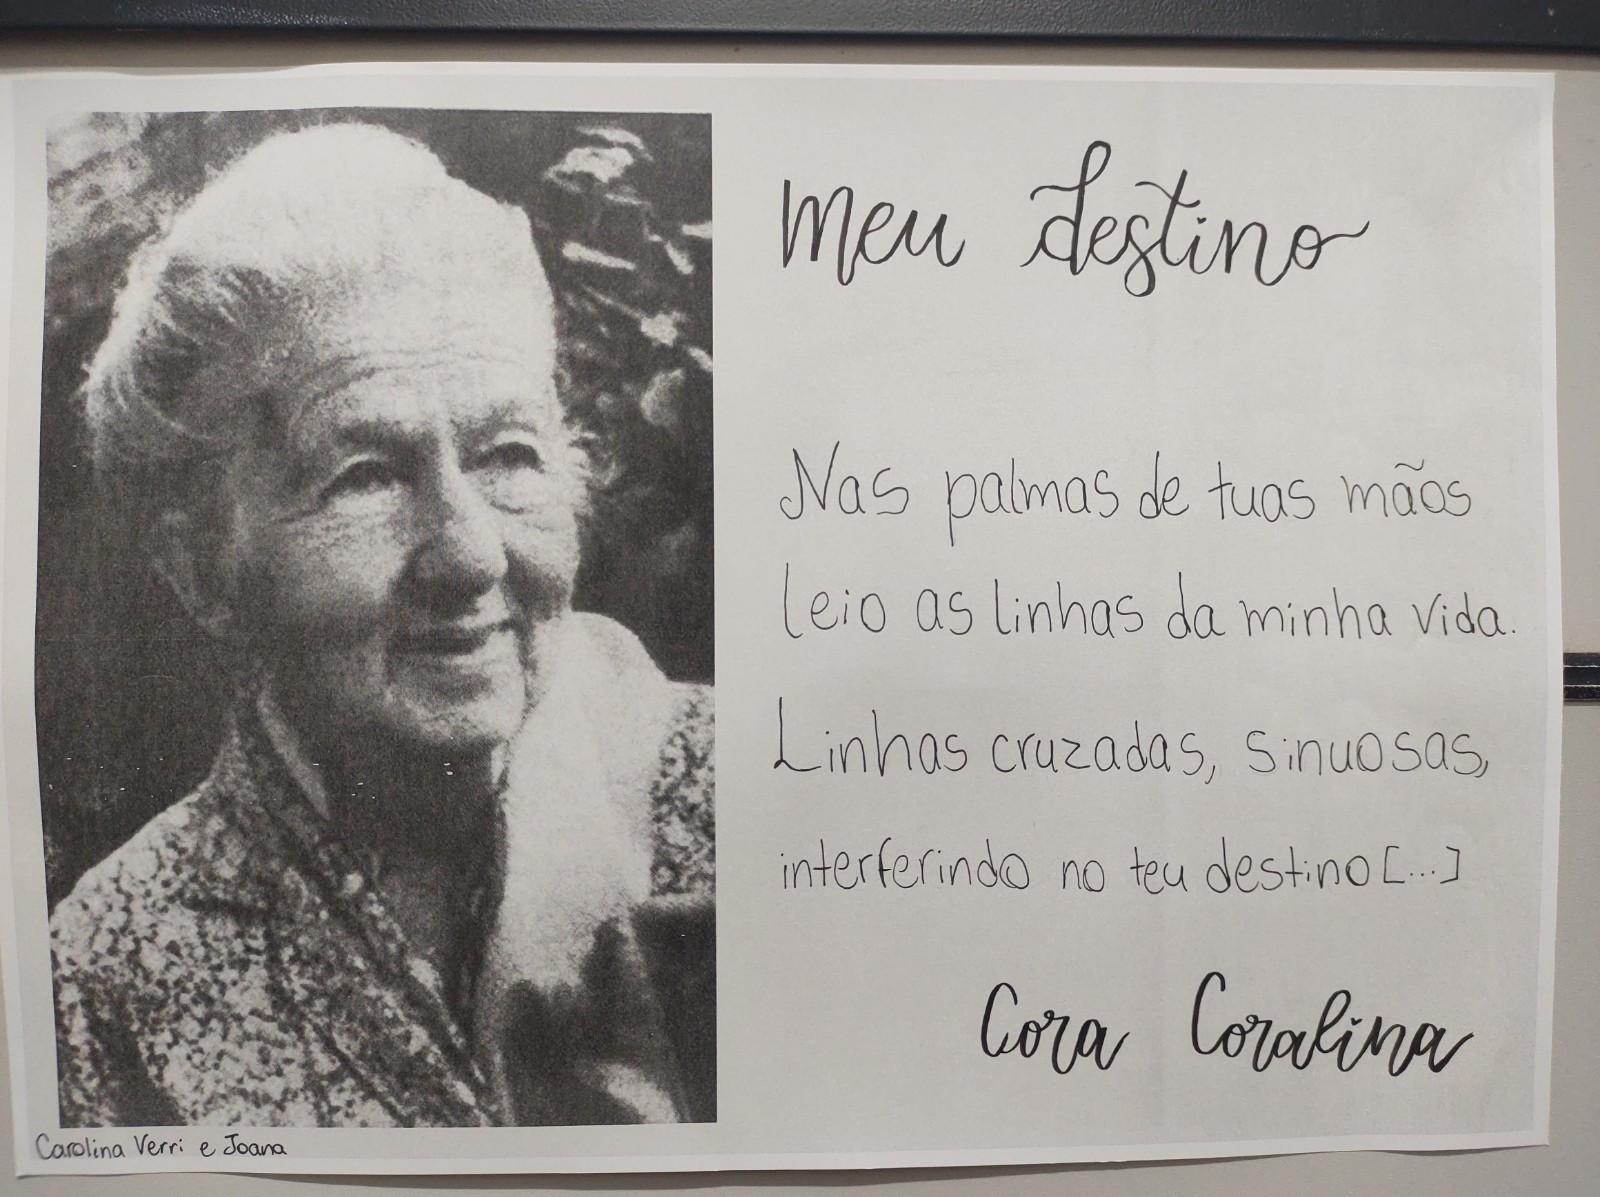 Meu destino
Nas palmas de tuas mãos
leio as linhas da minha vida.
Linhas cruzadas, sinuosas,
interferindo no teu destino [...]
Cora Coralina
Carolina Verri e Joana